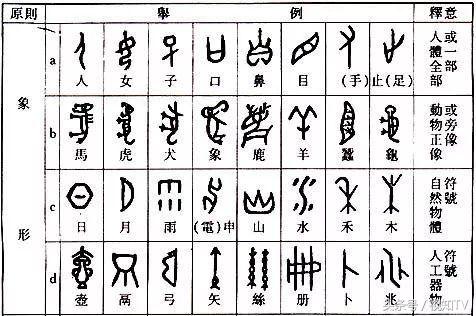 原則 舉例 釋意
象形
a 人 女 子 口 鼻 目 (手) 止(足) 人體全部或一部
b 馬 虎 犬 象 鹿 羊 蠶 龜 動物正像或旁像
c 日 月 雨 (電)申 山 水 禾 木 自然物體符號
d 壺 鬲 弓 矢 絲 册 卜 兆 人工器物符號
头条号 / 视知TV